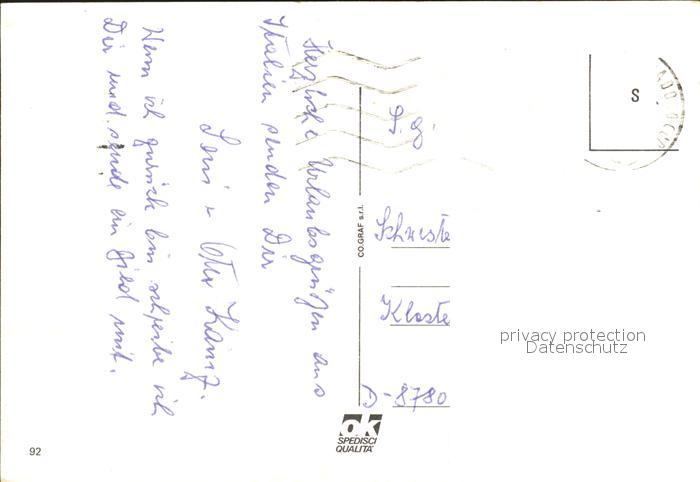 Herzliche Urlaubsgrüßen aus
Italien senden Dir
Leni + Otto
Wenn ich zurück bin schreibe ich
Dir und sende ein Bild mit.
CO.GRAF s.r.l.
S
Schweste
Kloste
D-8780
privacy protection
Datenschutz
ok
SPEDISCI
QUALITA'
92